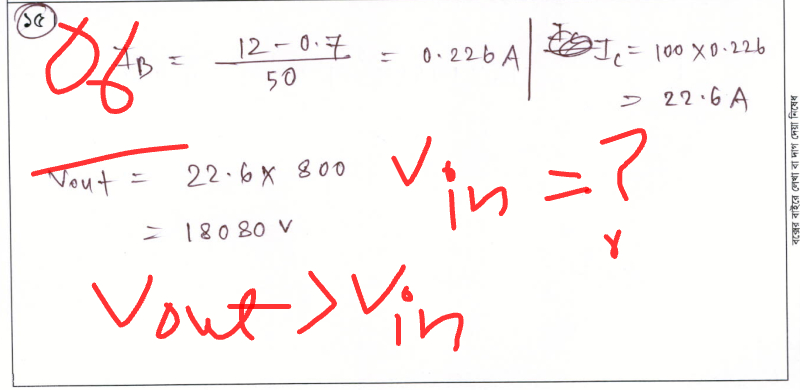 ১৫
I_B = (12 - 0.7) / 50 = 0.226 A | I_C = 100 × 0.226
= 22.6 A
Vout = 22.6 × 800
= 18080 V
Vin = ?
Vout > Vin
বক্সের বাইরে লেখা বা দাগ দেয়া নিষেধ